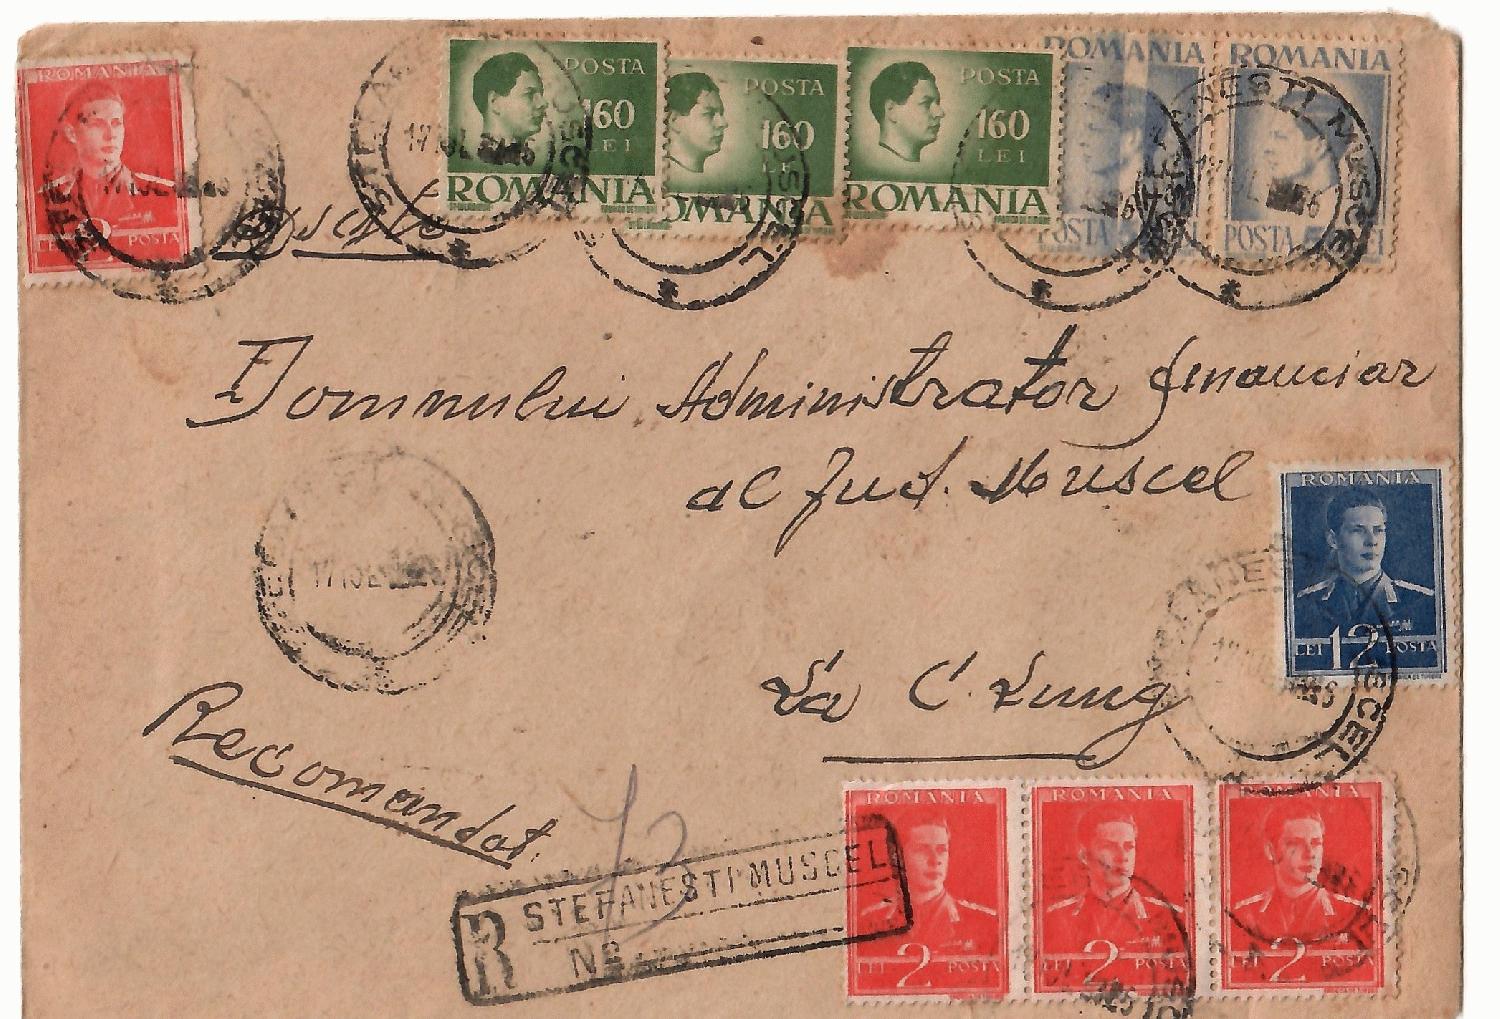 ROMANIA
LEI 2 POSTA
POSTA
160
LEI
ROMANIA
POSTA
160
LEI
ROMANIA
POSTA
160
LEI
ROMANIA
ROMANIA
POSTA
ROMANIA
POSTA
STEFANESTI MUSCEL
17 IUL
Domnului Administrator financiar
al Jud. Muscel
ROMANIA
LEI 12 POSTA
17 IUL
La C. Lung
Recomandat.
R
STEFANESTI MUSCEL
No
ROMANIA
LEI 2 POSTA
ROMANIA
LEI 2 POSTA
ROMANIA
LEI 2 POSTA